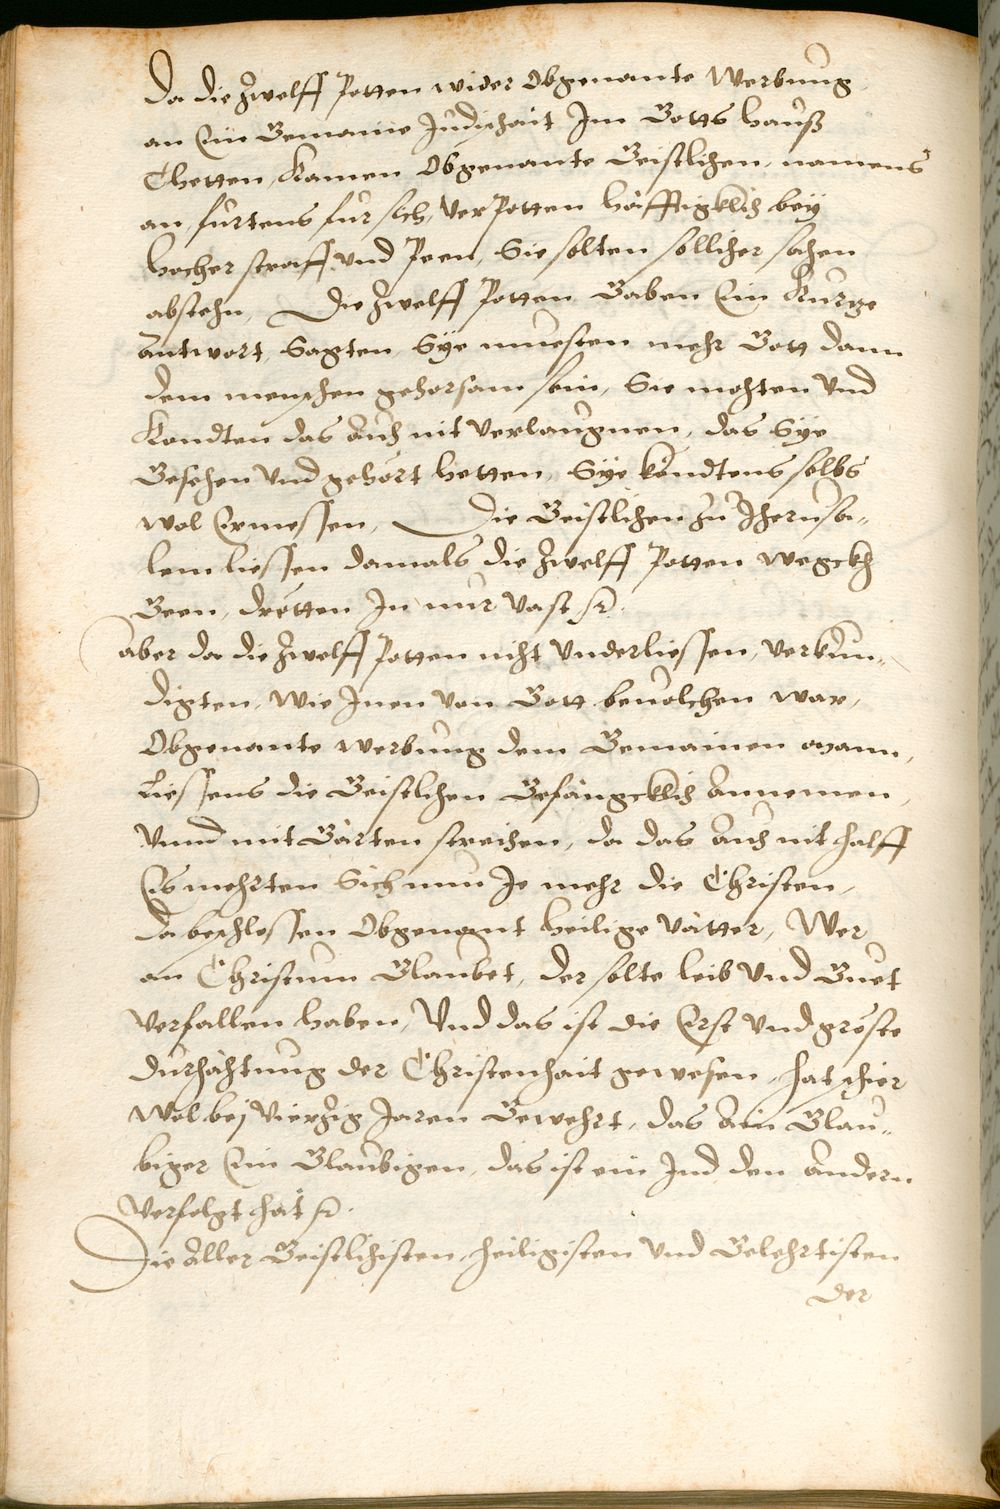 Da die Zwelff Potten wider Obgenante Werbung
an Ein Gemaine Judischait Im Gotts hauß
Thetten, Kamen Obgenante Geistlichen, namens
an, furtens fur sich, Verpotten häfftigklich bey
hocher straff Vnd Peen, Sie solten sollicher sachen
abstehn, Die Zwelff Potten Gaben Ein Kurtze
Antwort, Sagten Sye muesten mehr Gott dann
dem menschen gehorsam sein, Sie mochten Vnd
Kondten das Auch nit Verlaugnen, das Sye
Gesehen Vnd gehört hetten, Sye köndtens selbs
wol Ermessen, Die Geistlichen zu Jherusa„
lem liessen damals die Zwelff Potten wegckh
Geen, drötten In nur Vast ꝛc.
Aber da die Zwelff Potten nicht Vnderliessen, Verkün„
digten, Wie Inen Von Gott beuolchen war,
Obgenante Werbung dem Gemainen Mann,
Liessens die Geistlichen Gefängcklich Annemen,
Vnnd mit Gärten streichen, da das Auch nit halff
Es mehrten Sich nun Je mehr die Christen,
Da beschlossen Obgenant heilige Vätter, Wer
an Christum Glaubet, der solte leib Vnd Guet
Verfallen haben, Vnd das ist die Erst Vnd gröste
durchächtung der Christenhait gewesen, hat schier
Wol bej Viertzig Jaren Gewehrt, das Ain Glau„
biger Ein Glaubigen, das ist ein Jud den Andern
Verfolgt hat ꝛc.
Die Aller Geistlichisten, heiligisten Vnd Gelehrtisten
der